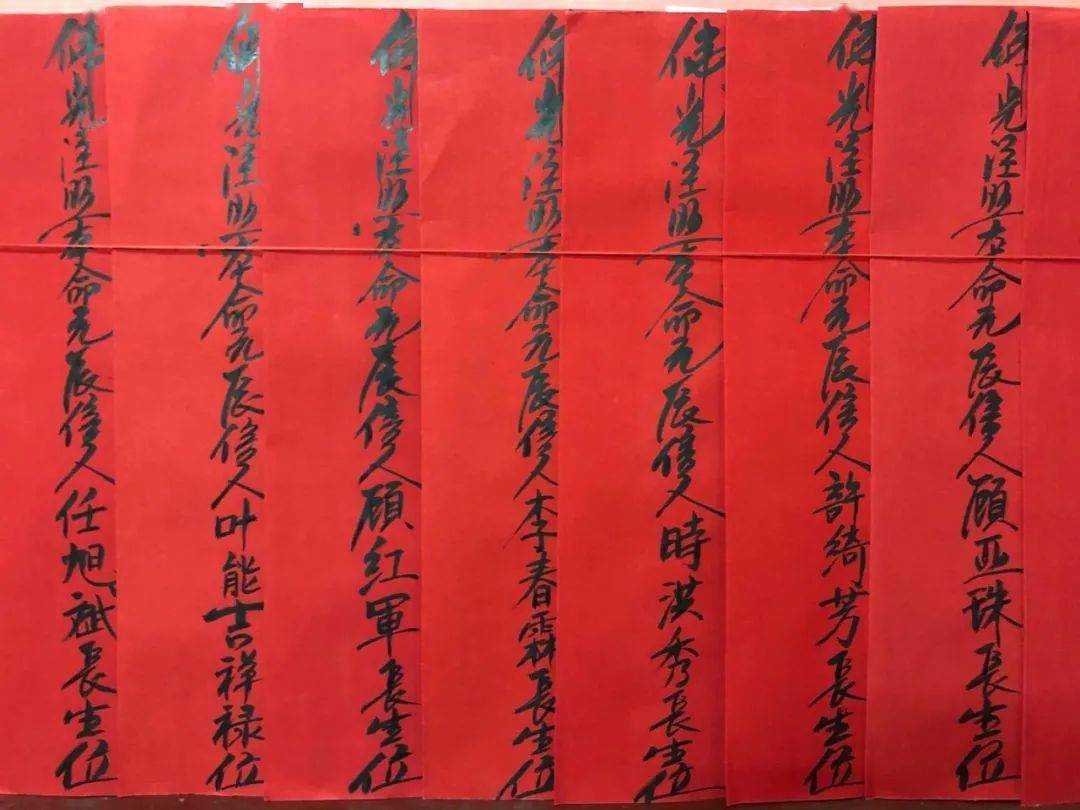 佛光注照本命元辰信人顾亚珠長生位
佛光注照本命元辰信人許綺芳長生位
佛光注照本命元辰信人時洪秀長生位
佛光注照本命元辰信人李春霖長生位
佛光注照本命元辰信人顾红軍長生位
佛光注照本命元辰信人叶能吉祥禄位
佛光注照本命元辰信人任旭斌長生位